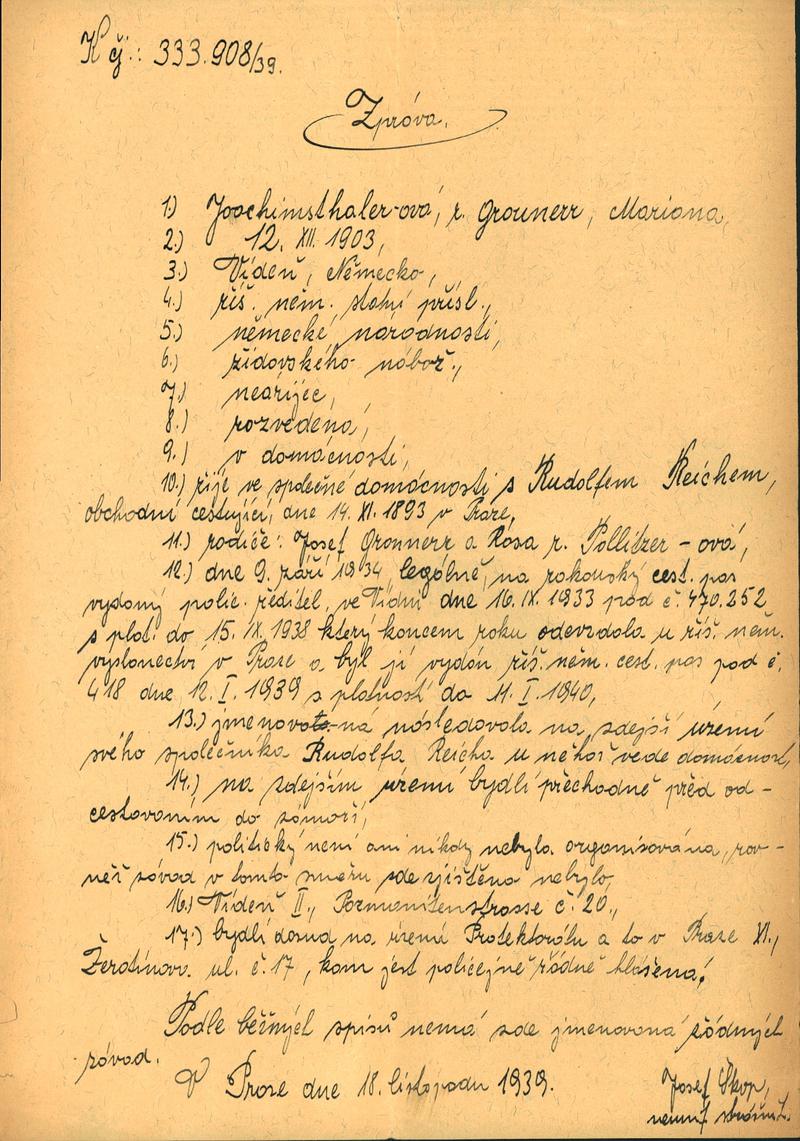 K čj.: 333.908/39.
Zpráva.
1.) Joachimsthaler-ová, r. Grounerr, Mariana,
2.) 12. XII. 1903,
3.) Vídeň, Německo,
4.) říš. něm. státní přísl.,
5.) německé národnosti,
6.) židovského nábož.,
7.) neárijec,
8.) rozvedená,
9.) v domácnosti,
10.) žije ve společné domácnosti s Rudolfem Reichem,
obchodní cestující, dne 14. XI. 1893 v Praze,
11.) rodiče: Josef Grounerr a Rosa r. Pollitzer-ová,
12.) dne 9. září 1934 legálně, na rakouský cest. pas
vydaný polic. ředitel. ve Vídni dne 16. IX. 1933 pod č. 470.252
s plat. do 15. IX. 1938 který koncem roku odevzdala u říš. něm.
vyslanectví v Praze a byl jí vydán říš. něm. cest. pas pod č.
418 dne 12. I. 1939 s platností do 11. I. 1940,
13.) jmenovaná následovala na zdejší území
svého společníka Rudolfa Reicha u něhož vede domácnost,
14.) na zdejším území bydlí přechodně před od-
cestováním do zámoří,
15.) politický není ani nikdy nebyla organisována, rov-
něž závad v tomto směru zde zjištěno nebylo,
16.) Vídeň II., č. 20.,
17.) bydlí dosud na území Protektorátu a to v Praze XI.,
Žerotínova ul. č. 17, kam jest policejně řádně hlášena.
Podle běžných spisů nemá zde jmenovaná žádných
závad.
V Praze dne 18. listopadu 1939.
Josef Škop,